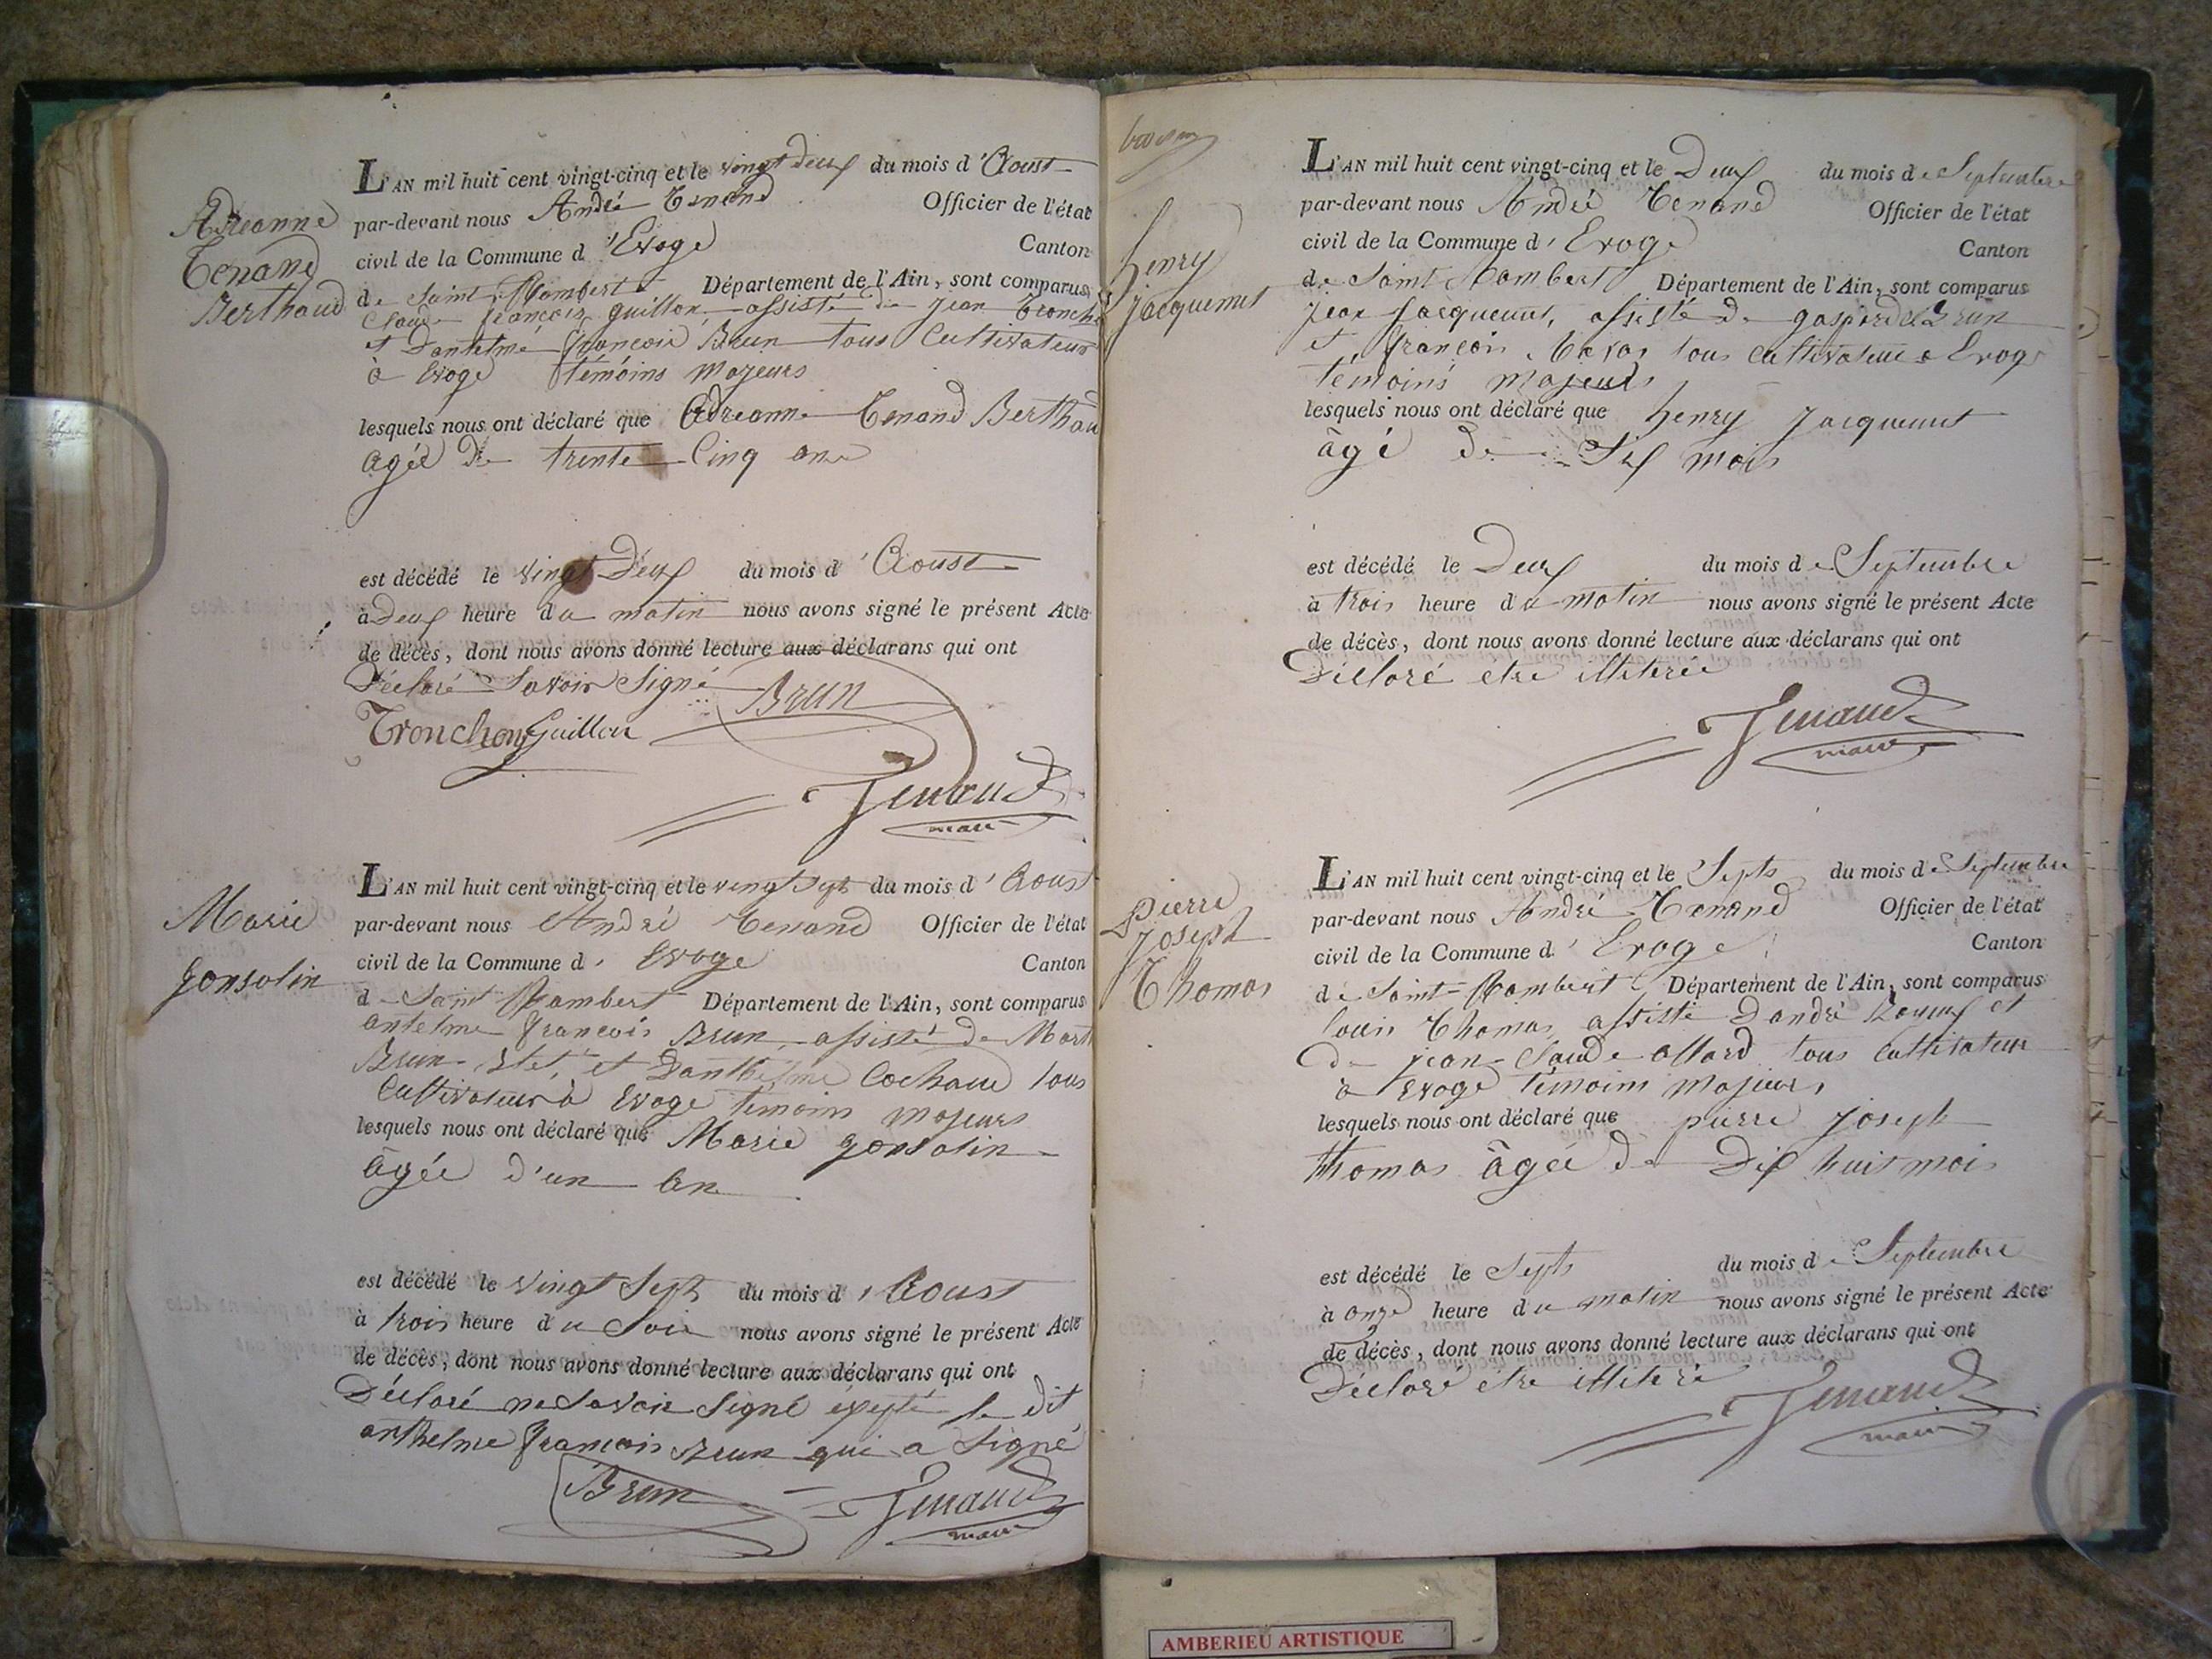 Adreanne
Tenand
Berthaud
L'AN mil huit cent vingt-cinq et le vingt deux du mois d'Aoust
par-devant nous André Tenand Officier de l'état
civil de la Commune d'Evoge Canton
de Saint Rambert Département de l'Ain, sont comparus
Claude françois guillon assisté de jean tronch
et Dantelme françois Brun tous Cultivateur
à Evoge témoins majeurs
lesquels nous ont déclaré que Adreanne Tenand Berthau
agée de trente Cinq ans
est décédé le vingt Deux du mois d'Aoust
à Deux heure du matin nous avons signé le présent Acte
de décès, dont nous avons donné lecture aux déclarans qui ont
Déclaré Savoir Signé Brun
Tronchon Guillon
Tenand
maire
Marie
gonsolin
L'AN mil huit cent vingt-cinq et le vingt sept du mois d'Aoust
par-devant nous André Tenand Officier de l'état
civil de la Commune d'Evoge Canton
de Saint Rambert Département de l'Ain, sont comparus
antelme françois Brun, assisté de Mart
Brun et Danthelme Cochaud tous
Cultivateur à Evoge temoins majeurs
lesquels nous ont déclaré que Marie gonsolin
âgée d'un an
est décédé le vingt Sept du mois d'Aoust
à trois heure du Soir nous avons signé le présent Acte
de décès, dont nous avons donné lecture aux déclarans qui ont
Déclaré ne Savoir Signé éxepté le dit
anthelme françois Brun qui a Signé
Brun Tenand
maire
henry
jacquemet
L'AN mil huit cent vingt-cinq et le Deux du mois de Septembre
par-devant nous André Tenand Officier de l'état
civil de la Commune d'Evoge Canton
de Saint Rambert Département de l'Ain, sont comparus
jean jacquemet, assisté de gaspard Brun
et françois tous cultivateur a Evoge
témoins majeurs
lesquels nous ont déclaré que henry jacquemet
âgé de Six mois
est décédé le Deux du mois de Septembre
à trois heure du matin nous avons signé le présent Acte
de décès, dont nous avons donné lecture aux déclarans qui ont
Déclaré etre illitéré
Tenand
maire
pierre
joseph
Thomas
L'AN mil huit cent vingt-cinq et le Septs du mois de Septembre
par-devant nous André Tenand Officier de l'état
civil de la Commune d'Evoge Canton
de Saint-Rambert Département de l'Ain, sont comparus
louis Thomas, assisté D'andré et
de jean Claude allard tous Cultivateur
à Evoge témoins majeurs
lesquels nous ont déclaré que pierre joseph
thomas âgée de Dix huit mois
est décédé le Septs du mois de Septembre
à onze heure du matin nous avons signé le présent Acte
de décès, dont nous avons donné lecture aux déclarans qui ont
Déclaré étre illitéré
Tenand
maire
AMBERIEU ARTISTIQUE